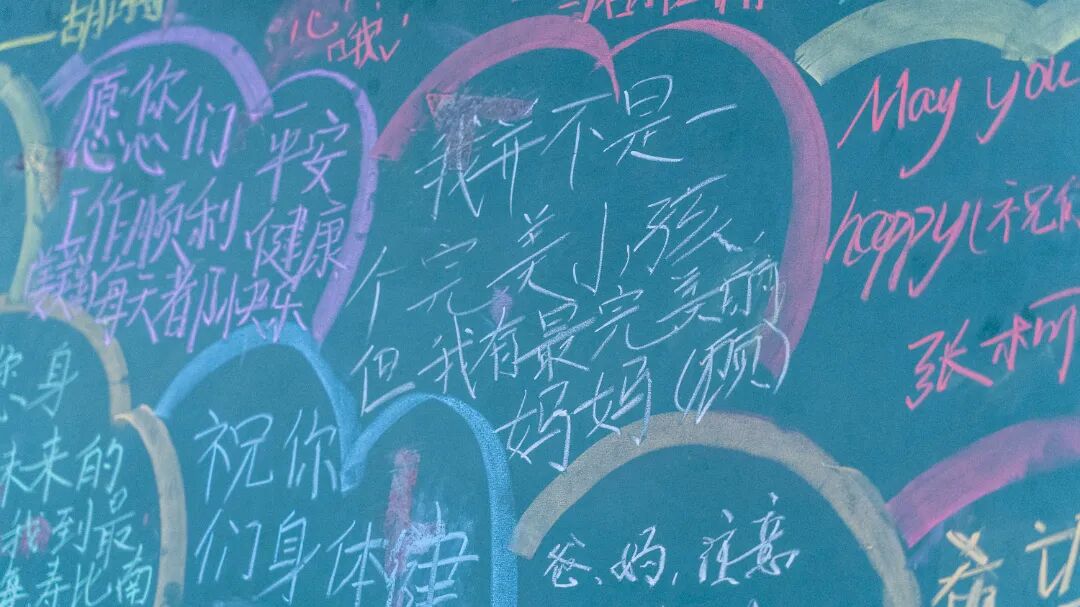 一胡
哦!
愿你们 平安
工作顺利 健康
每天都快乐
我并不是一
个完美小孩
但我有最完美的
妈妈
May you
happy(祝你
张柯
身
未来的
我到最
寿比南
祝你
们身体健
爸、妈,注意